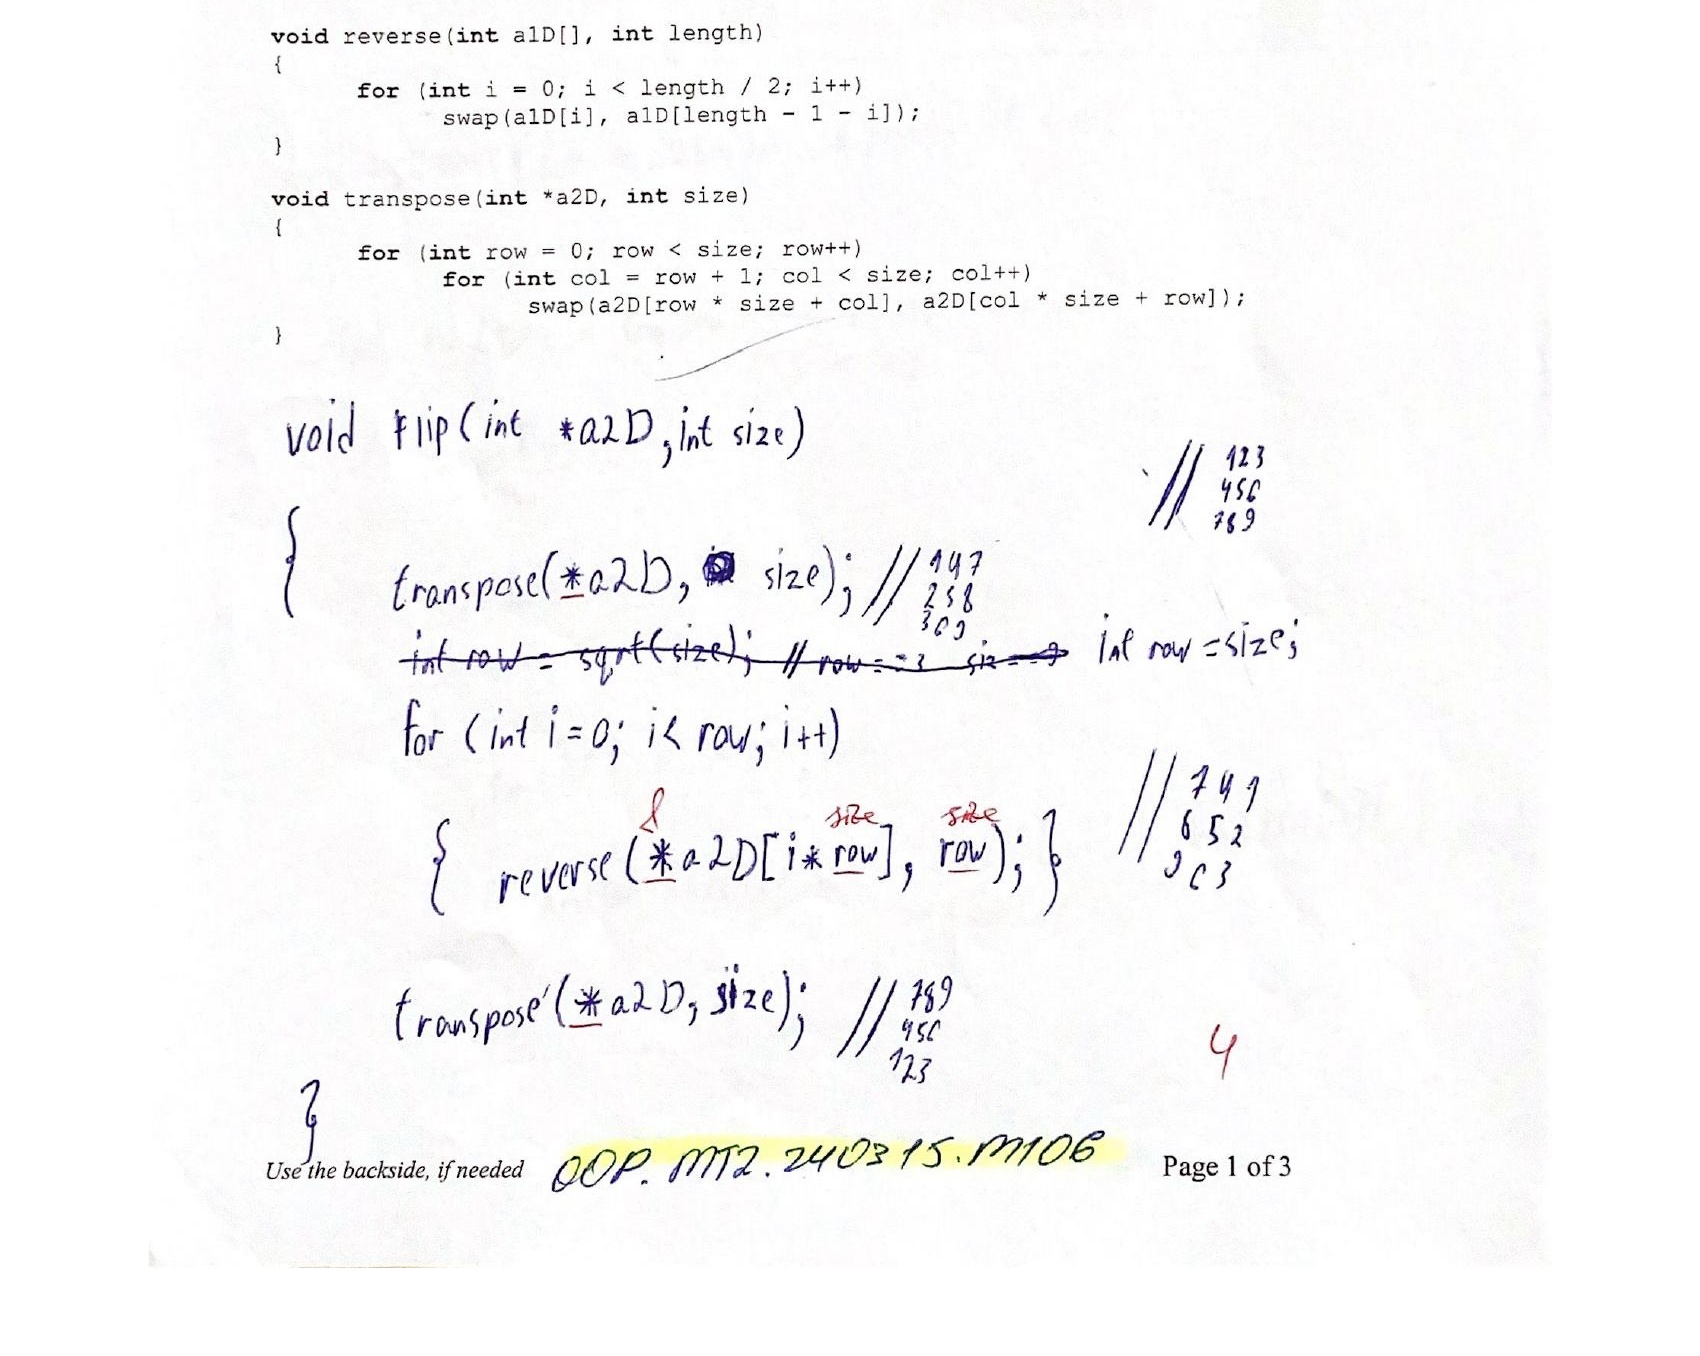 void reverse(int a1D[], int length)
{
for (int i = 0; i < length / 2; i++)
swap(a1D[i], a1D[length - 1 - i]);
}
void transpose(int *a2D, int size)
{
for (int row = 0; row < size; row++)
for (int col = row + 1; col < size; col++)
swap(a2D[row * size + col], a2D[col * size + row]);
}
void flip(int *a2D, int size)
// 123
456
789
{
transpose(*a2D, size); // 147
258
369
int row = sqrt(size); // row == 3 size == 9 int row = size;
for (int i = 0; i < row; i++)
size size
{ reverse(*a2D[i * row], row); } // 741
652
963
transpose(*a2D, size); // 789
456
123
4
}
Use the backside, if needed OOP. MT2. 240315. M106 Page 1 of 3